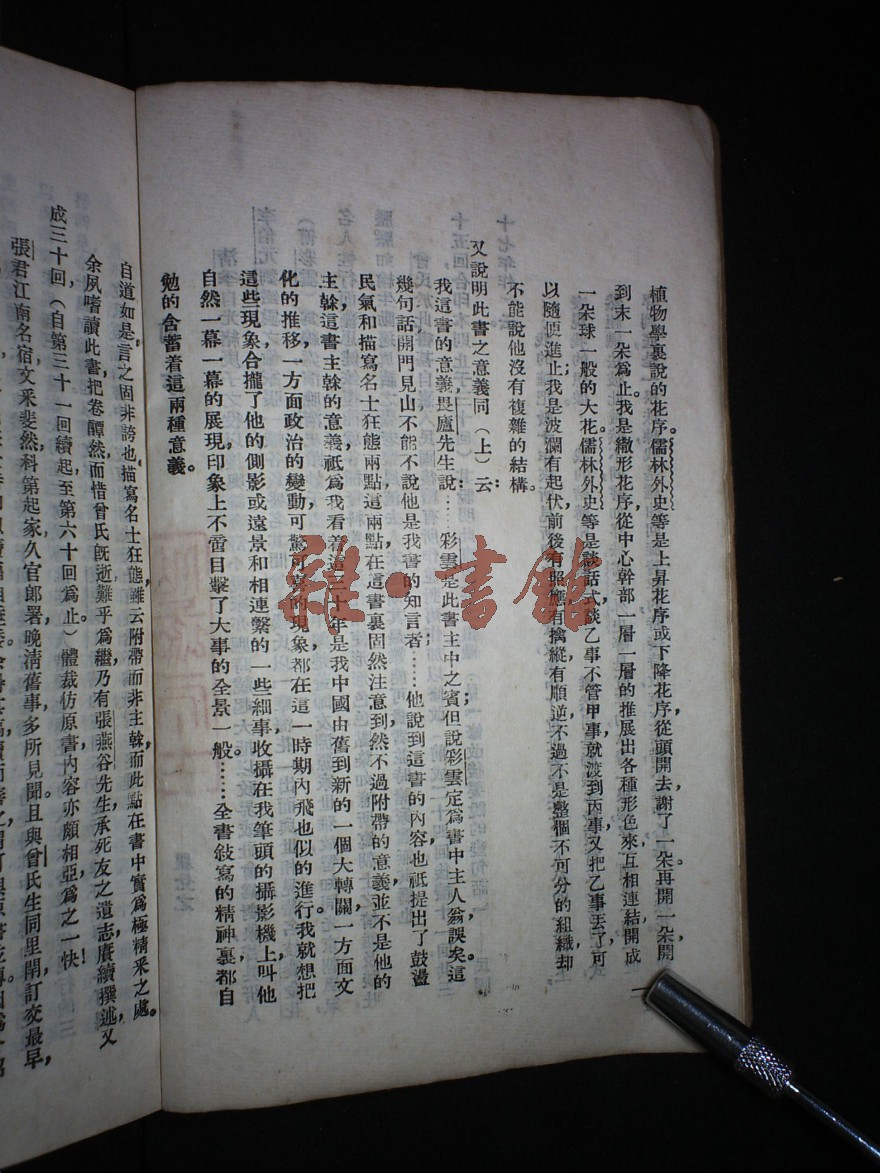 植物學裏說的花序。儒林外史等是上昇花序或下降花序，從頭開去，謝了一朵，再開一朵，開
到末一朵爲止。我是繖形花序，從中心幹部一層一層的推展出各種形色來，互相連結，開成
一朵球一般的大花。儒林外史等是談話式，談乙事不管甲事，就渡到丙事，又把乙事丟了，可
以隨便進止；我是波瀾有起伏，前後有照應，有擒縱，有順逆，不過不是整個不可分的組織，却
不能說他沒有複雜的結構。
又說明此書之意義同（上）云：
我這書的意義，畏廬先生說：……彩雲是此書主中之賓，但說彩雲定爲書中主人翁，誤矣。這
幾句話開門見山，不能不說他是我書的知言者；……他說到這書的內容，也祇提出了鼓盪
民氣和描寫名士狂態兩點。這兩點在這書裏固然注意到，然不過附帶的意義，並不是他的
主幹。這書主幹的意義，祇爲我看着這三十年，是我中國由舊到新的一個大轉關，一方面文
化的推移，一方面政治的變動，可驚可喜的現象，都在這一時期內飛也似的進行。我就想把
這些現象，合攏了他的側影或遠景和相連繫的一些細事，收攝在我筆頭的攝影機上，叫他
自然一幕一幕的展現，印象上不啻目擊了大事的全景一般。……全書敍寫的精神裏，都自
勉的含蓄着這兩種意義。
自道如是，言之固非誇也。描寫名士狂態，雖云附帶而非主幹，而此點在書中實爲極精釆之處。
余夙嗜讀此書，把卷醰然，而惜曾氏旣逝，難乎爲繼，乃有張燕谷先生，承死友之遺志，賡續撰述，又
成三十回（自第三十一回續起，至第六十回爲止）體裁仿原書，內容亦頗相亞，爲之一快！
張君江南名宿，文釆斐然，科第起家，久官郎署，晚淸舊事，多所見聞，且與曾氏生同里閈，訂交最早，
一
雜·書館